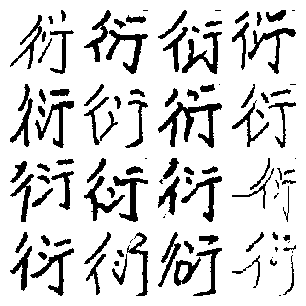 衍衍衍衍
衍衍衍衍
衍衍衍衍
衍衍衍衍